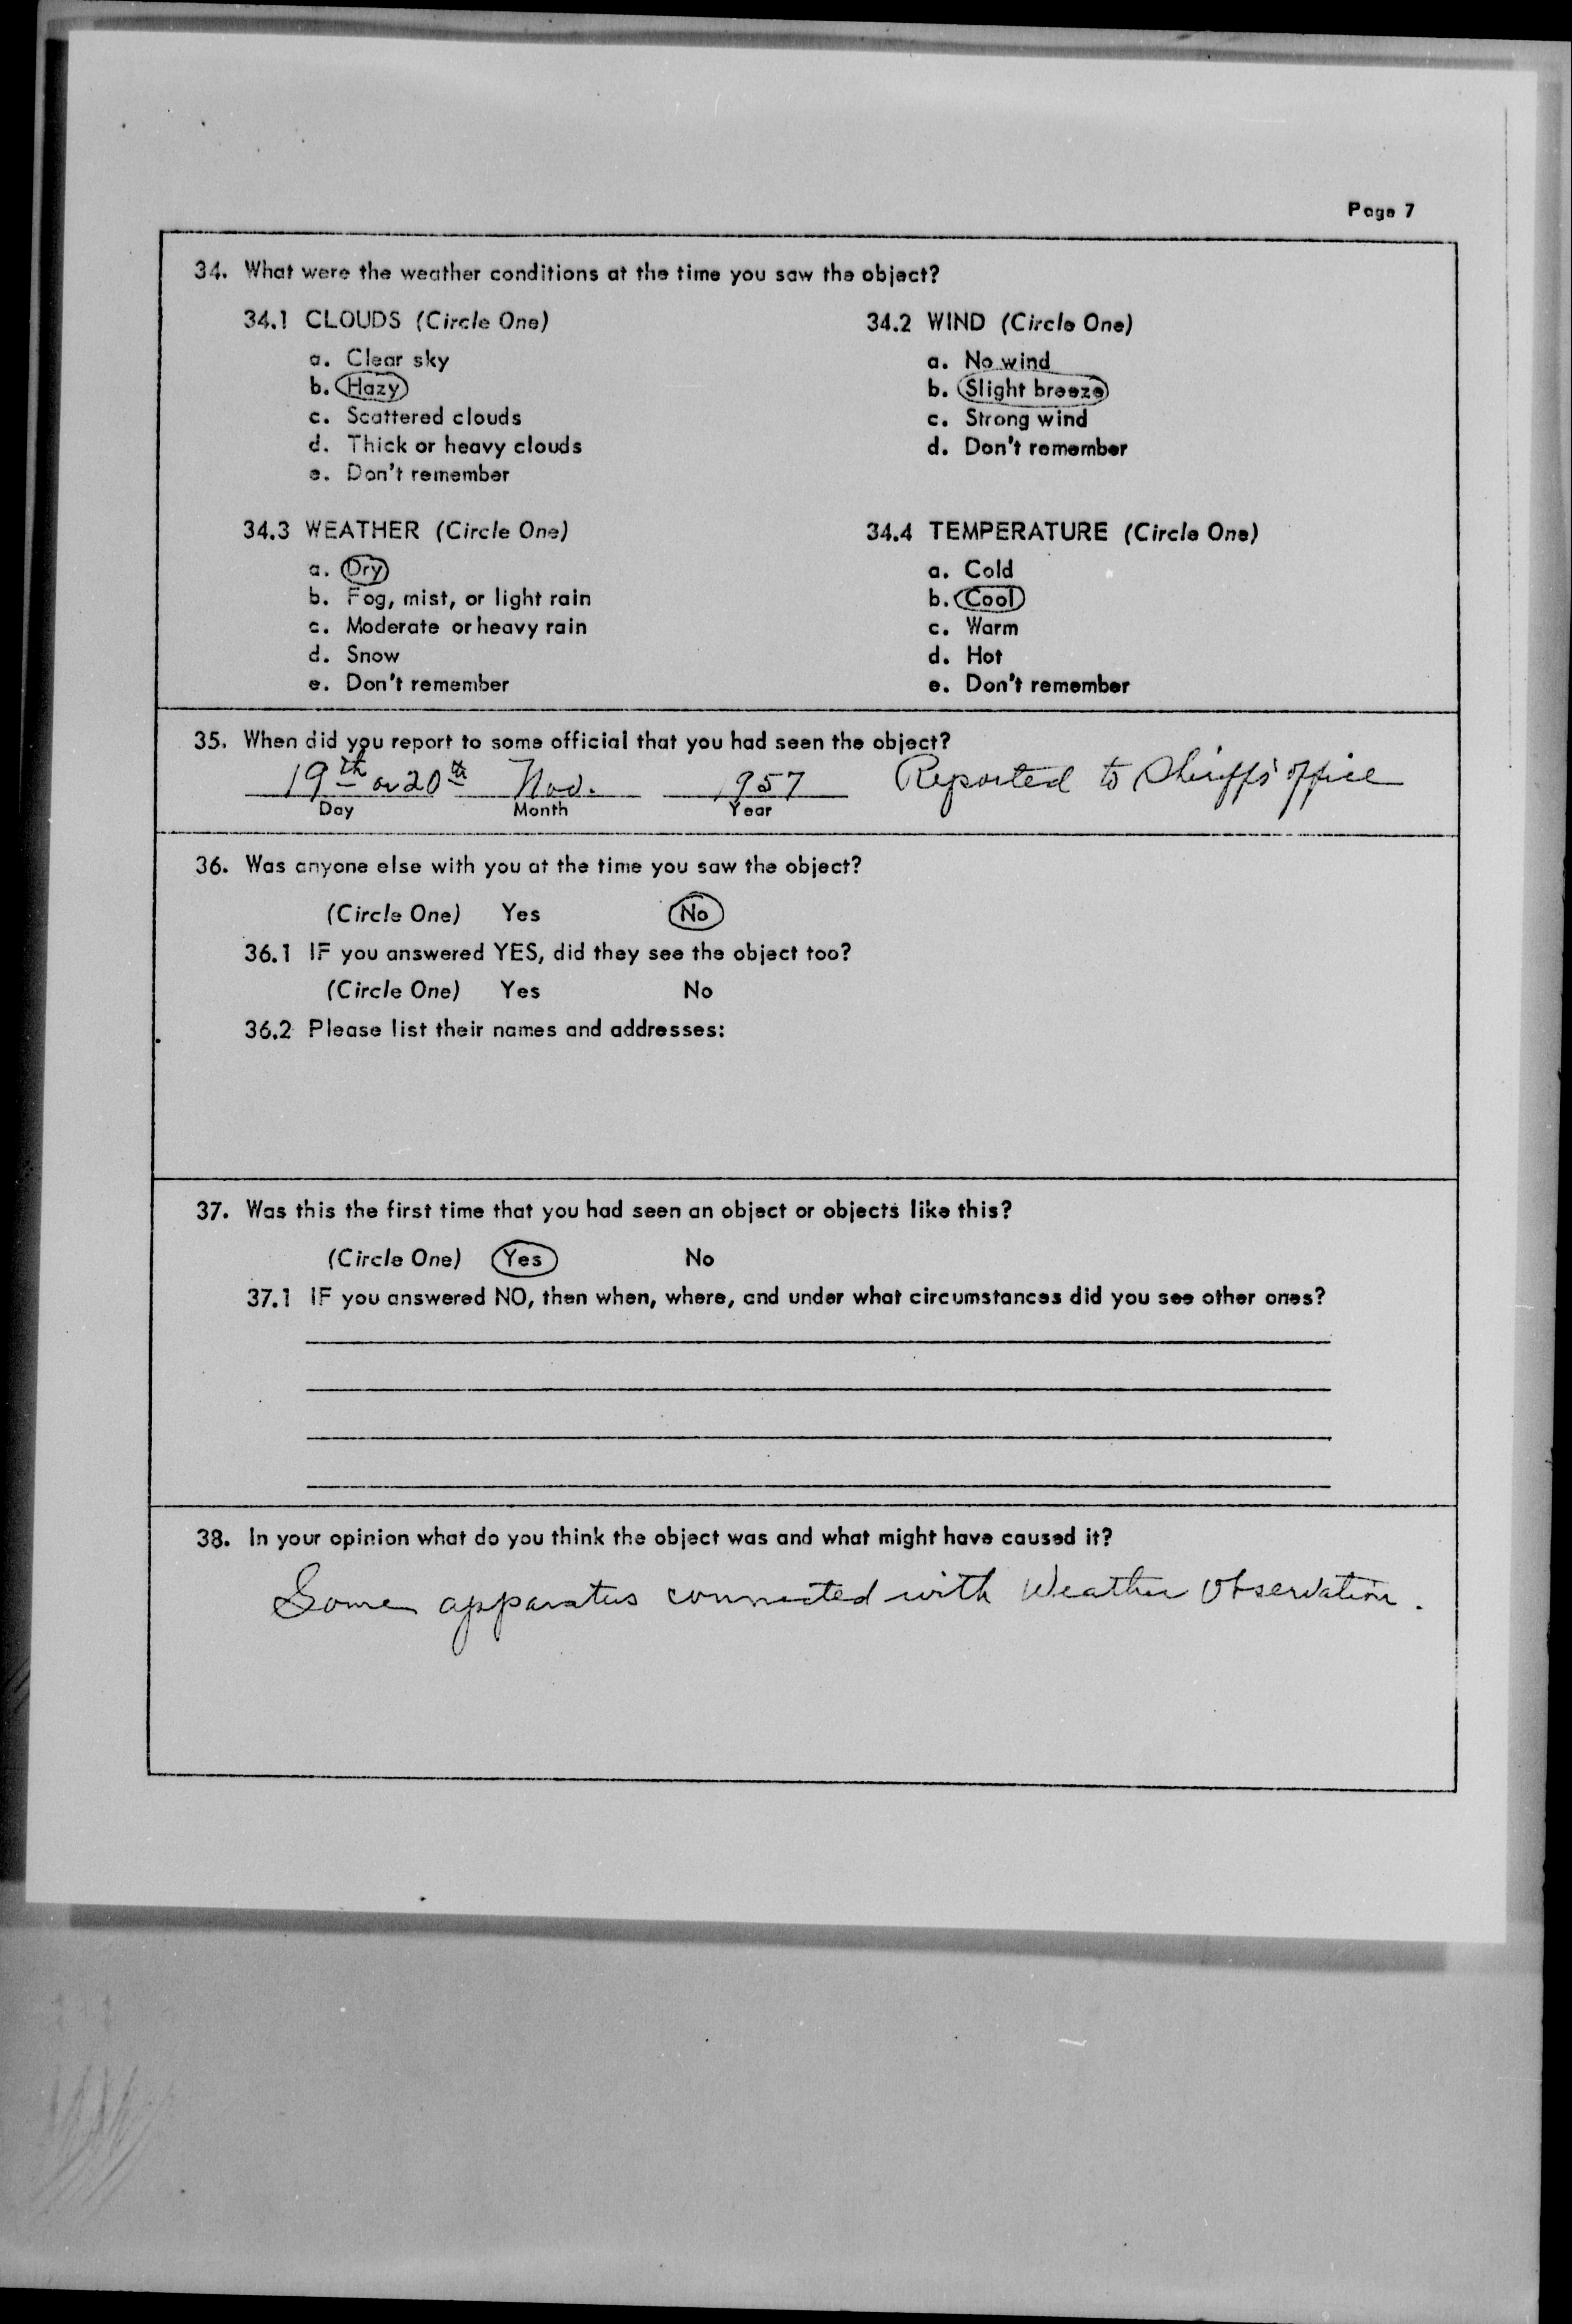 Page 7
34. What were the weather conditions at the time you saw the object?
34.1 CLOUDS (Circle One)
a. Clear sky
b. Hazy
c. Scattered clouds
d. Thick or heavy clouds
e. Don't remember
34.2 WIND (Circle One)
a. No wind
b. Slight breeze
c. Strong wind
d. Don't remember
34.3 WEATHER (Circle One)
a. Dry
b. Fog, mist, or light rain
c. Moderate or heavy rain
d. Snow
e. Don't remember
34.4 TEMPERATURE (Circle One)
a. Cold
b. Cool
c. Warm
d. Hot
e. Don't remember
35. When did you report to some official that you had seen the object?
19th or 20th Nov. 1957 Reported to Sheriff's office
Day Month Year
36. Was anyone else with you at the time you saw the object?
(Circle One) Yes No
36.1 IF you answered YES, did they see the object too?
(Circle One) Yes No
36.2 Please list their names and addresses:
37. Was this the first time that you had seen an object or objects like this?
(Circle One) Yes No
37.1 IF you answered NO, then when, where, and under what circumstances did you see other ones?
38. In your opinion what do you think the object was and what might have caused it?
Some apparatus connected with Weather Observation.